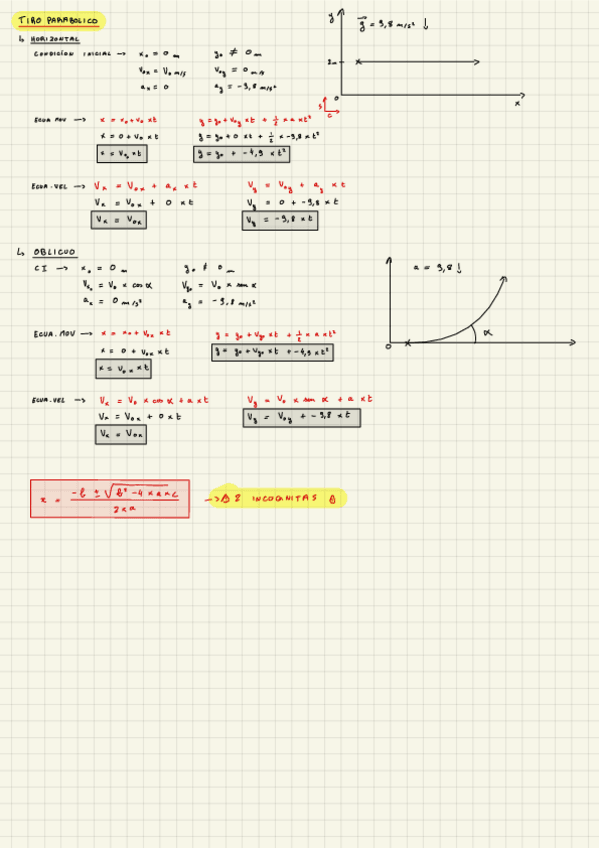 TIRO PARABOLICO
↳ HORIZONTAL
CONDICION INICIAL → x₀ = 0 m y₀ ≠ 0 m
V₀ₓ = V₀ m/s V₀y = 0 m/s
aₓ = 0 ay = -9,8 m/s²
y g = 9,8 m/s² ↓
2m
0 x
ECUA MOV → x = x₀ + v₀ x t y = y₀ + V₀y x t + 1/2 x a x t²
x = 0 + V₀ x t y = y₀ + 0 x t + 1/2 x -9,8 x t²
x = V₀ x t y = y₀ + -4,9 x t²
ECUA.VEL → Vₓ = V₀ₓ + aₓ x t Vy = V₀y + ay x t
Vₓ = V₀ₓ + 0 x t Vy = 0 + -9,8 x t
Vₓ = V₀ₓ Vy = -9,8 x t
↳ OBLICUO
CI → x₀ = 0 m y₀ ≠ 0 m
V₀ₓ = V₀ x cos α V₀y = V₀ x sen α
aₓ = 0 m/s² ay = -9,8 m/s²
a = 9,8 ↓
α
0
ECUA.MOV → x = x₀ + V₀ₓ x t y = y₀ + V₀y x t + 1/2 x a x t²
x = 0 + V₀ₓ x t y = y₀ + V₀y x t + -4,9 x t²
x = V₀ₓ x t
ECUA.VEL → Vₓ = V₀ x cos α + a x t Vy = V₀ x sen α + a x t
Vₓ = V₀ₓ + 0 x t Vy = V₀y + -9,8 x t
Vₓ = V₀ₓ
x = (-b ± √(b² - 4 x a x c)) / (2 x a) → 2 INCOGNITAS